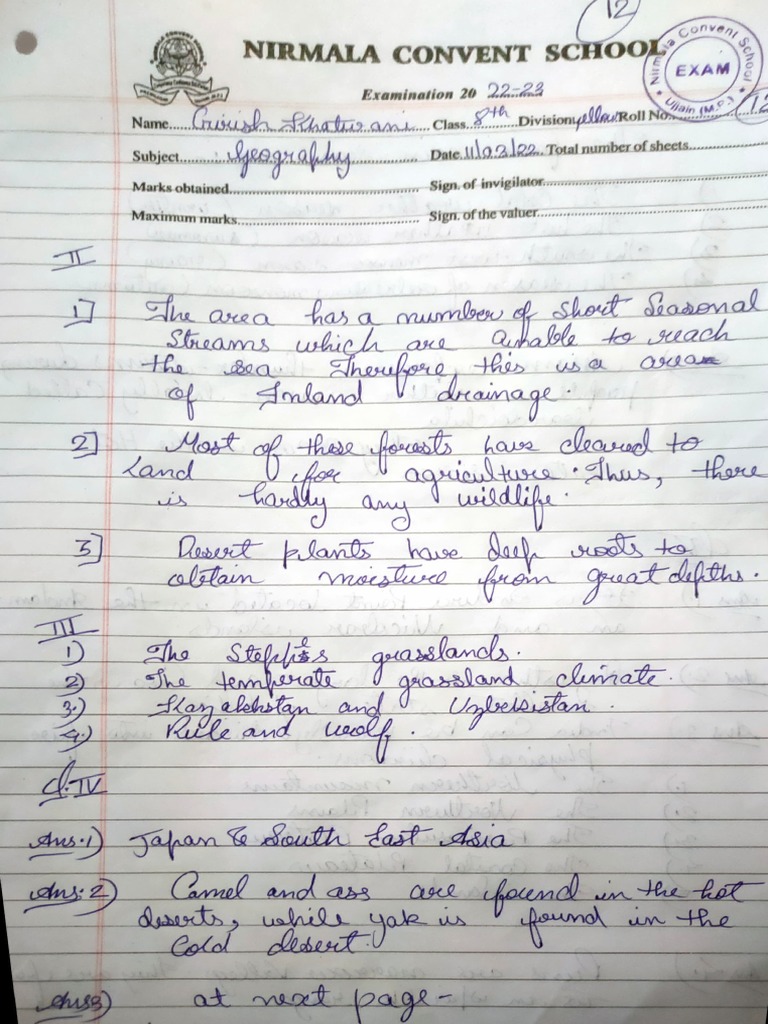 12
NIRMALA CONVENT SCHOOL
Nirmala Convent School
EXAM
Ujjain (M.P.)
Examination 20 22-23
Name Girish Khatwani Class 8th Division yellow Roll No. 12
Subject Geography Date 11/03/22 Total number of sheets
Marks obtained Sign. of invigilator
Maximum marks Sign. of the valuer
II
1] The area has a number of Short Seasonal
Streams which are unable to reach
the sea Therefore, this is a area
of Inland drainage.
2] Most of these forests have cleared to
Land for agriculture. Thus, there
is hardly any wildlife.
3] Desert plants have deep roots to
obtain moisture from great depths.
III
1) The Steppes grasslands.
2) The temperate grassland climate.
3.) Kazakhstan and Uzbekistan.
4.) and wolf.
Q.IV
Ans.1) Japan & South East Asia
Ans:2) Camel and ass are found in the hot
deserts, while yak is found in the
Cold desert.
Ans3) at next page-